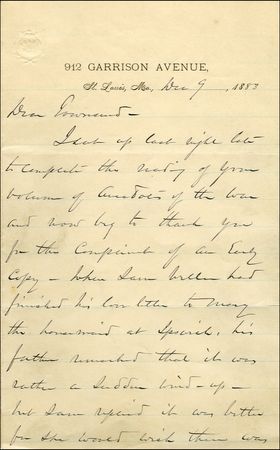 912 GARRISON AVENUE,
St. Louis, Mo., Dec 9, 1883
Dear Townsend—
I sat up last night late
to complete the reading of your
volume of Anecdotes of the War
and now beg to thank you
for the Compliment of an Early
Copy— When Sam Weller had
finished his love letter to Mary
the housemaid at Ipswich, his
father remarked that it was
rather a sudden wind-up—
but Sam replied it was better
for she would wish there was